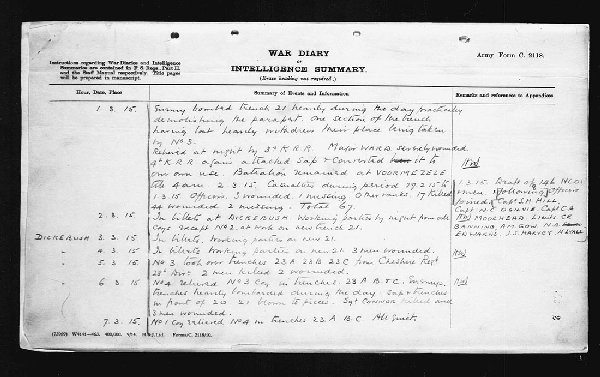 WAR DIARY
or
INTELLIGENCE SUMMARY.
(Erase heading not required.)
Army Form C. 2118.
Instructions regarding War Diaries and Intelligence
Summaries are contained in F. S. Regs., Part II.
and the Staff Manual respectively. Title pages
will be prepared in manuscript.
Hour, Date, Place
Summary of Events and Information
Remarks and references to Appendices
1. 3. 15.
Enemy bombed trench 21 heavily during the day practically
demolishing the parapet. One section of the trench
having lost heavily withdrew their place being taken
by No 3.
Relieved at night by 3rd K.R.R. Major WARD severely wounded.
4th K.R.R. again attacked Sap & converted it to
own use. Battalion remained at VOORMEZELE
till 4 am 2.3.15. Casualties during period
1.3.15 Officers 3 wounded 1 missing Other ranks 17 killed
44 wounded 2 missing. Total 67.
2. 3. 15.
In billets at DICKEBUSH. Working parties by night from all
Coys except No 2. at work on new trench 21.
DICKEBUSH 3. 3. 15.
In billets. Working parties on new 21.
" 4. 3. 15
In billets Working parties on new 21. 3 men wounded.
" 5. 3. 15
No 3 took over trenches 23A 23B 23C from Cheshire Regt
28th Div. 2 men killed 2 wounded.
" 6. 3. 15
No 4 relieved No 3 Coy in trenches 23 A B & C. Enemys
trenches heavily bombarded during the day. Sap & trenches
in front of 20 21 blown to pieces. Sgt killed and
3 men wounded.
7. 3. 15.
No 1 Coy relieved No 4 in trenches 23. A B C All quiet
1.3.15. Draft of 146 NCOs
& men & following officers
joined Capt S.M. HILL
Capt
MOORHEAD Lieuts C.K.
BANNING A.M. GOW. N.A.
EDWARDS. J.S. HARVEY.